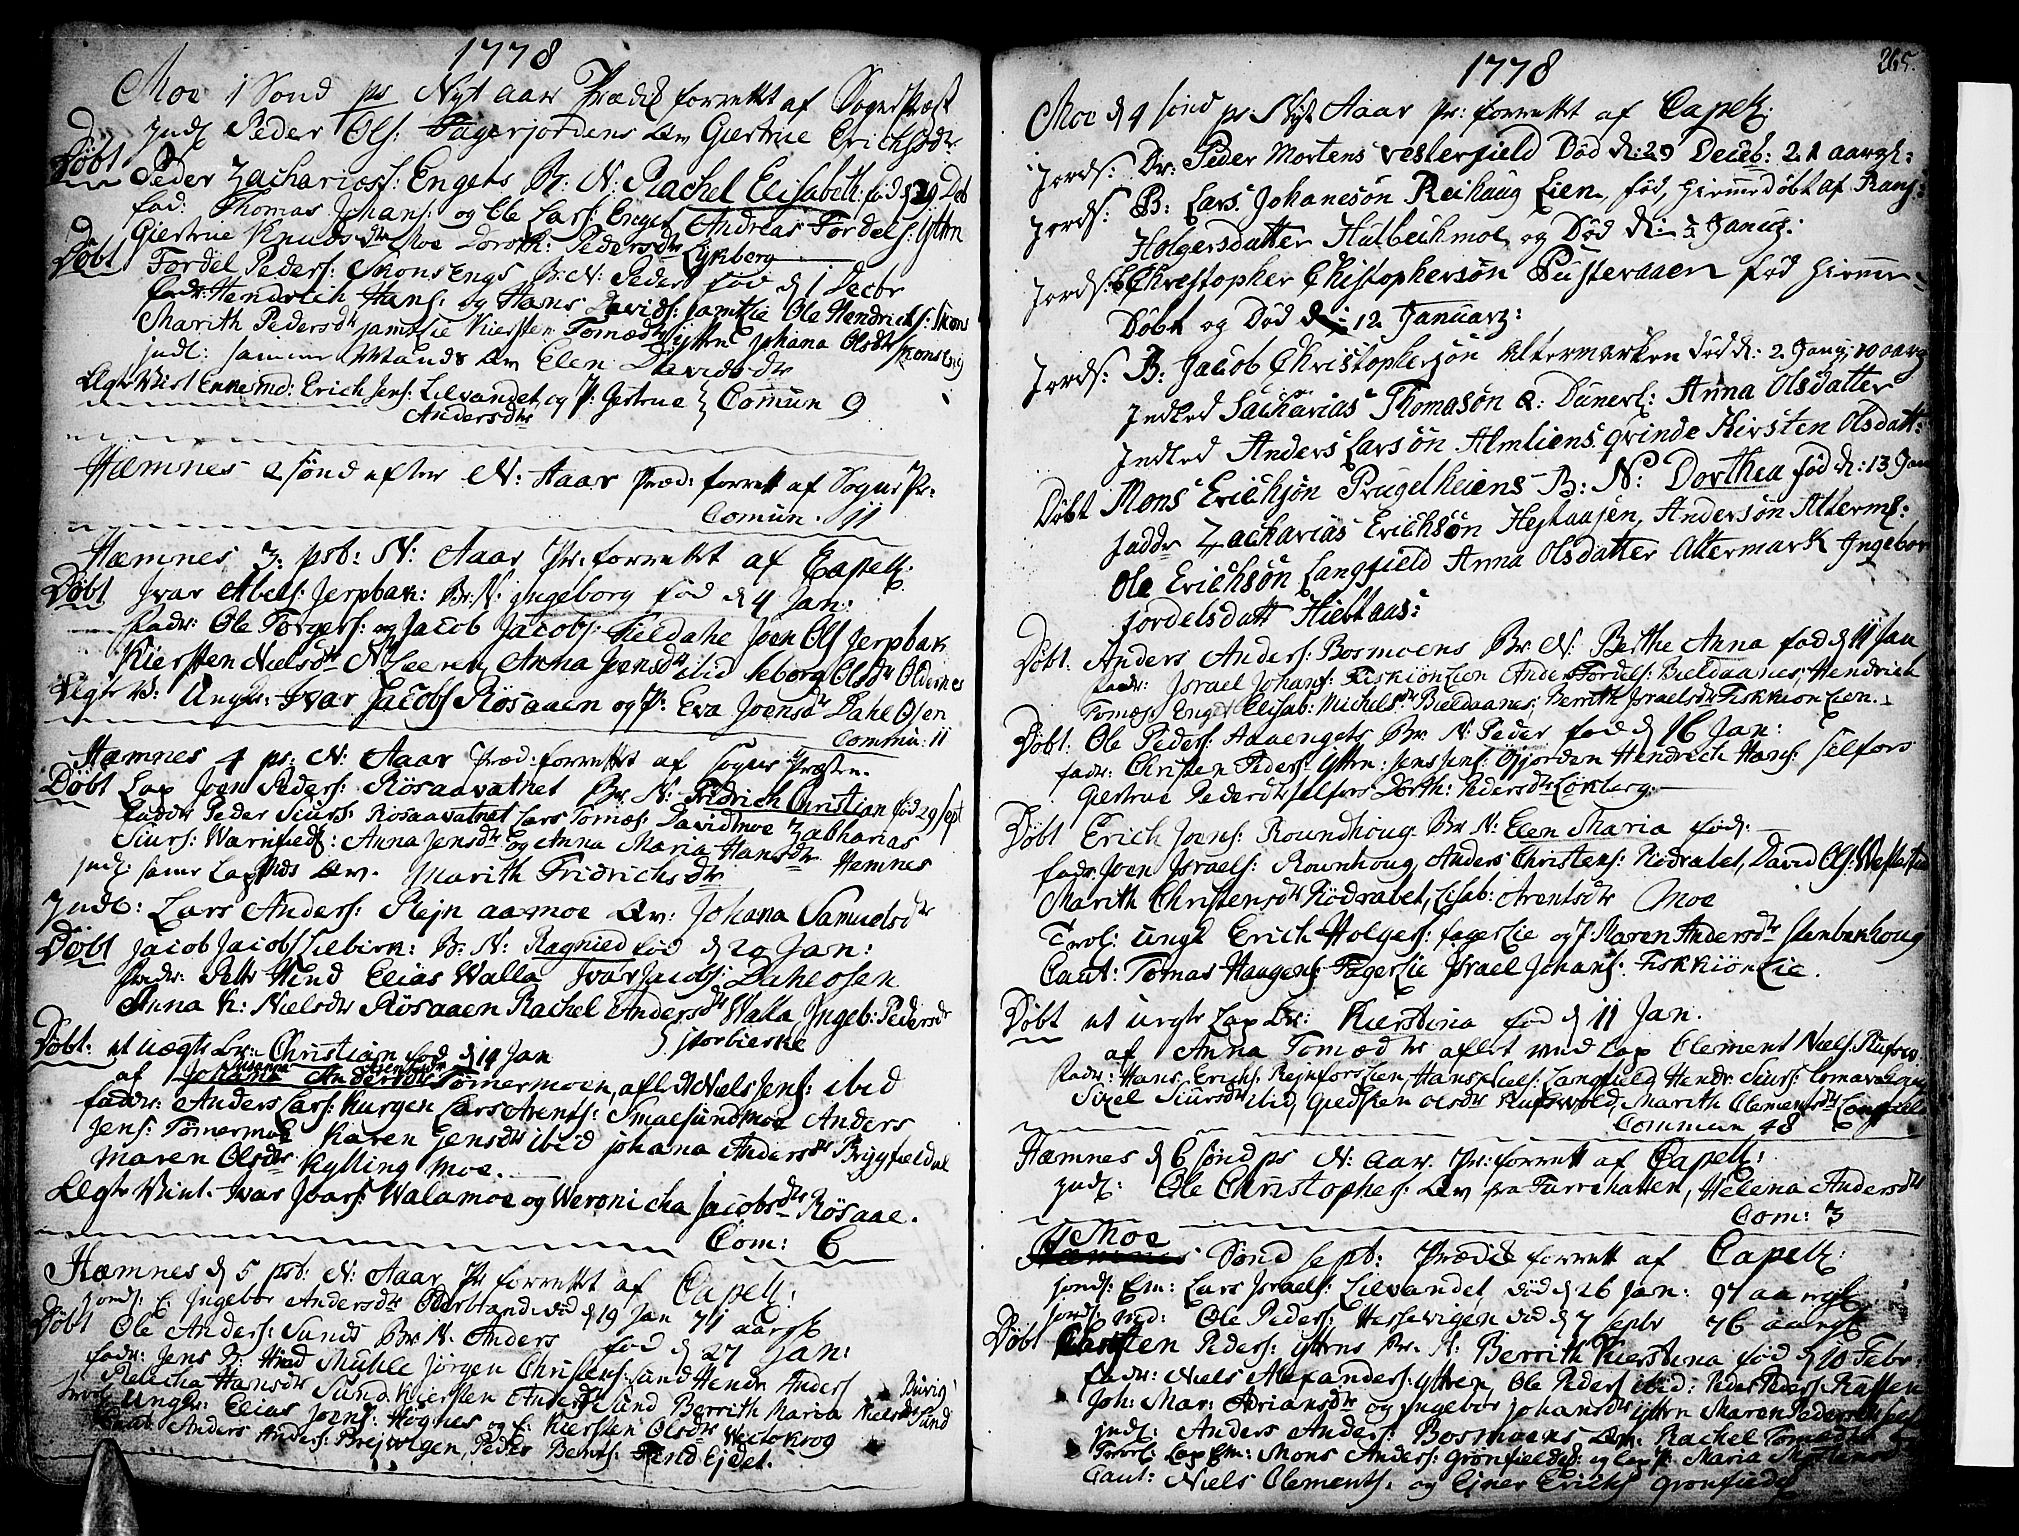 1778
Moe 1 Sond pr Nyt aar Prædik forrettet af Sognepræst
Indl Peder Ols: Fagerjordens Qv Giertrue Erichsdr
Døbt Peder Zachariæs: Engets B: N: Rachel Elisabeth fød d 29 Dec
fad: Thomas Johans: og Ole Lars: Enget Andreas Fordels: Ytten
Giertrue Knudsdr Moe Doroth: Pedersdr Lynberg
Døbt Fordel Peders: Skons Engs Br. N: Peder fød d 1 Decbr
fadr: Hendrich Hans: og Hans Davids: samtlie Ole Hendrichs: Skons
Marith Pedersdr samtlie Kiersten Tomædr Ytten Johana Olsdr Skonseng
Indl: samme Mands Qv Elen Davidsdr
Ægte Viet Enkemd: Erich Jens: Lilvandet og P: Gertrue Andersdr Comun 9
Hæmnes 2 sønd efter N: Aaar Præd: forrett af Sogne Pr:
Comun. 11
Hæmnes 3. pst: N: Aaar Pr: forrettet af Capell.
Døbt Ivar Abels: Jerpbak: Br: N: Ingeborg fød d 4 Jan:
fadr: Ole Torgers: og Jacob Jacobs: Fieldahe Joen Ols Jerpbak
Kiersten Nielsdr N Leeren Anna Joensdr ibid Seborg Olsdr Oldernes
Ægte V: Ungkr: Ivar Jacobs Røsaaen og P: Eva Joensdr Dahl Osen
Commun: 11
Hæmnes 4 ps: N: Aaar Præd: forrettet af Sogne Præsten.
Døbt Lap Joen Peders: Røsaavatnet Br. N: Fridrich Christian fød 29 Sept
fadr Peder Siurs: Rosaavatnet Lars Tomæs: Davidmoe Zakharias
Siurs: Warnfield: Anna Jensdr Eg Anna Maria Hansdr Hemnes
Indl samme Laps Qv. Marith Fridrichsdr
Indl: Lars Anders: Plejn aamoe Qv: Johana Samuelsdr
Døbt Jacob Jacobs Lilbirk: B: N: Ragnied fød d 20 Jan:
fadr: Elias Walla Ivar Jacobs: Dahlosen
Anna K: Nielsdr Røsaaen Rachel Andersdr Walla Ingeb: Pedersdr
Storbierke
Døbt: et uægte Br: Christian fød d 14 Jan
af Johana Andersdr Tømermoen, aflet Niels Jens: ibid
faddr: Anders Lars: Kurgen Lars Arents: Smalsundmoe Anders
Jens: Tømermoe Karen Jensdr ibid Johana Andersdr Bryggfieldal
Maren Olsdr Kylling moe.
Ægte Viet. Ivar Ivars: Walamoe og Weronicha Jacobsdr Røsaae.
Com: 6
Hæmnes d 5 pst: N: Aaar Pr forrettet af Capell:
Jords: E: Ingebor Andersdr Død d 19 Jan 71 aargl
Døbt Ole Anders: Sunds Br. N. Anders fød d 27 Jan:
fadr: Jens B: Hind Muhle Jørgen Christens: Sund Hendr Anders
Relicha Hansdr Sund Kiersten Andersdr Sund Berrith Maria Nielsdr Sund
Trol: Ungkr: Elias Joens: Hognes og E: Kiersten Olsdr Westokrog
Caut Anders Anders: Brejvigen, Peder Bents: Find Ejdet.
265.
1778
Moe d 4 sønd ps Nyt Aaar Pr: forrettet af Capell:
Jords: Dr: Peder Mortens Vesterfield Død d: 29 Deceb: 21 aargl:
Jords: B: Lars Johanesøn Reihaug Lien, fød, hiemme døbt af Ran:
Holgersdatter Hulbechmoe og Død d: Januz:
Jords: B Christopher Christophersøn Pusteraaen fød hiemme-
Døbt og Død d: 12 Januarz:
Jords: B: Jacob Christophersøn Altermarken Død d: 2 Janz: 10 aarg
Indled Sacharias Thomasøn Q: Dunerl: Anna Olsdatter
Indled Anders Larsøn Almliens grinde Kirsten Olsdatt:
Døbt Mons Erichsøn Prugelheiens B: N: Dorthea fød d: 13 Jan
faddr Zacharias Erichsøn Hejhaujen, Andersøn Alterm:
Ole Erichsøn Langfield Anna Olsdatter Altermark Ingebor
Fordelsdatt Hielhaus:
Døbt: Anders Anders: Bosmoens Br. N: Berthe Anna fød d 11 Jan
fadr: Israel Johans: Fiskionlien Ande Fordels: Bieldaanes: Hendrick
Tomæs: Enget Elisab: Michelsdr Bieldaanes, Berrith Israelsdr Fiskkion Lien.
Døbt: Ole Peders: Aavengets Br. N: Peder fød d 16 Jan:
fadr: Christen Peders: Ytten: Jens Jens: Gjorden Hendrich Hans: Selfors
Giertrue Pedersdr Selfors Dorth: Pedersdr Lønberg.
Døbt Erich Joens: Roundhoug Br. N: Elen Maria fød:
fadr Joen Israels: Rounhoug, Anders Christens: Rødrabet, David Ols: Westerfie
Marith Christensdr Rødrabet, Lisab: Arentsdr Moe
Trol: Ungk Erich Holgers: fagerlie og P: Maren Andersdr Stenbenhoug
Caut: Tomas Haagens: Fagerlie Israel Johans: Fiskkionlie.
Døbt et uægte Lap Br: Kierstina fød d 11 Jan.
af Anna Tomædr aflet med Lap Clement Niels:
fadr: Hans Erichs: Rejnforslien, Hans Niels: Langfield Hendr Siurs:
Sizel Siursdr ibid, Gidsken Olsdr, Marith Clementsdr Langfield
Commun 48
Hæmnes d 6 sønd ps N: Aar. Pr: forrett af Capell:
Indl: Ole Christophers: Qv fra Furrehatten, Helena Andersdr
Com: 3
Moe Sønd Sept: Prædik forrett af Capell:
Jords: Em: Lars Israels: Lilvandet død d 26 Jan: 97 aargl
Jords: md: Ole Peders: Hessevigen død d 7 Febr 76 aargl
Døbt Christen Peders: Yttens Br. N: Berrith Kierstina fød d 10 Febr:
fadr: Niels Alexanders: Ytten, Ole Peders ibid: Peder Peders Ratten
Joh: Mar: Adriansdr og Ingebor Johansdr Ytten Maren Pedersdr
Indl: Anders Anders: Bosmoens Qv: Rachel Tomædr
Trol: Lap Em: Mons Anders: Grønfieldet: og Lap P: Maria Mortensdr
Caut: Niels Clements: og Ejner Erichs Grønfieldet